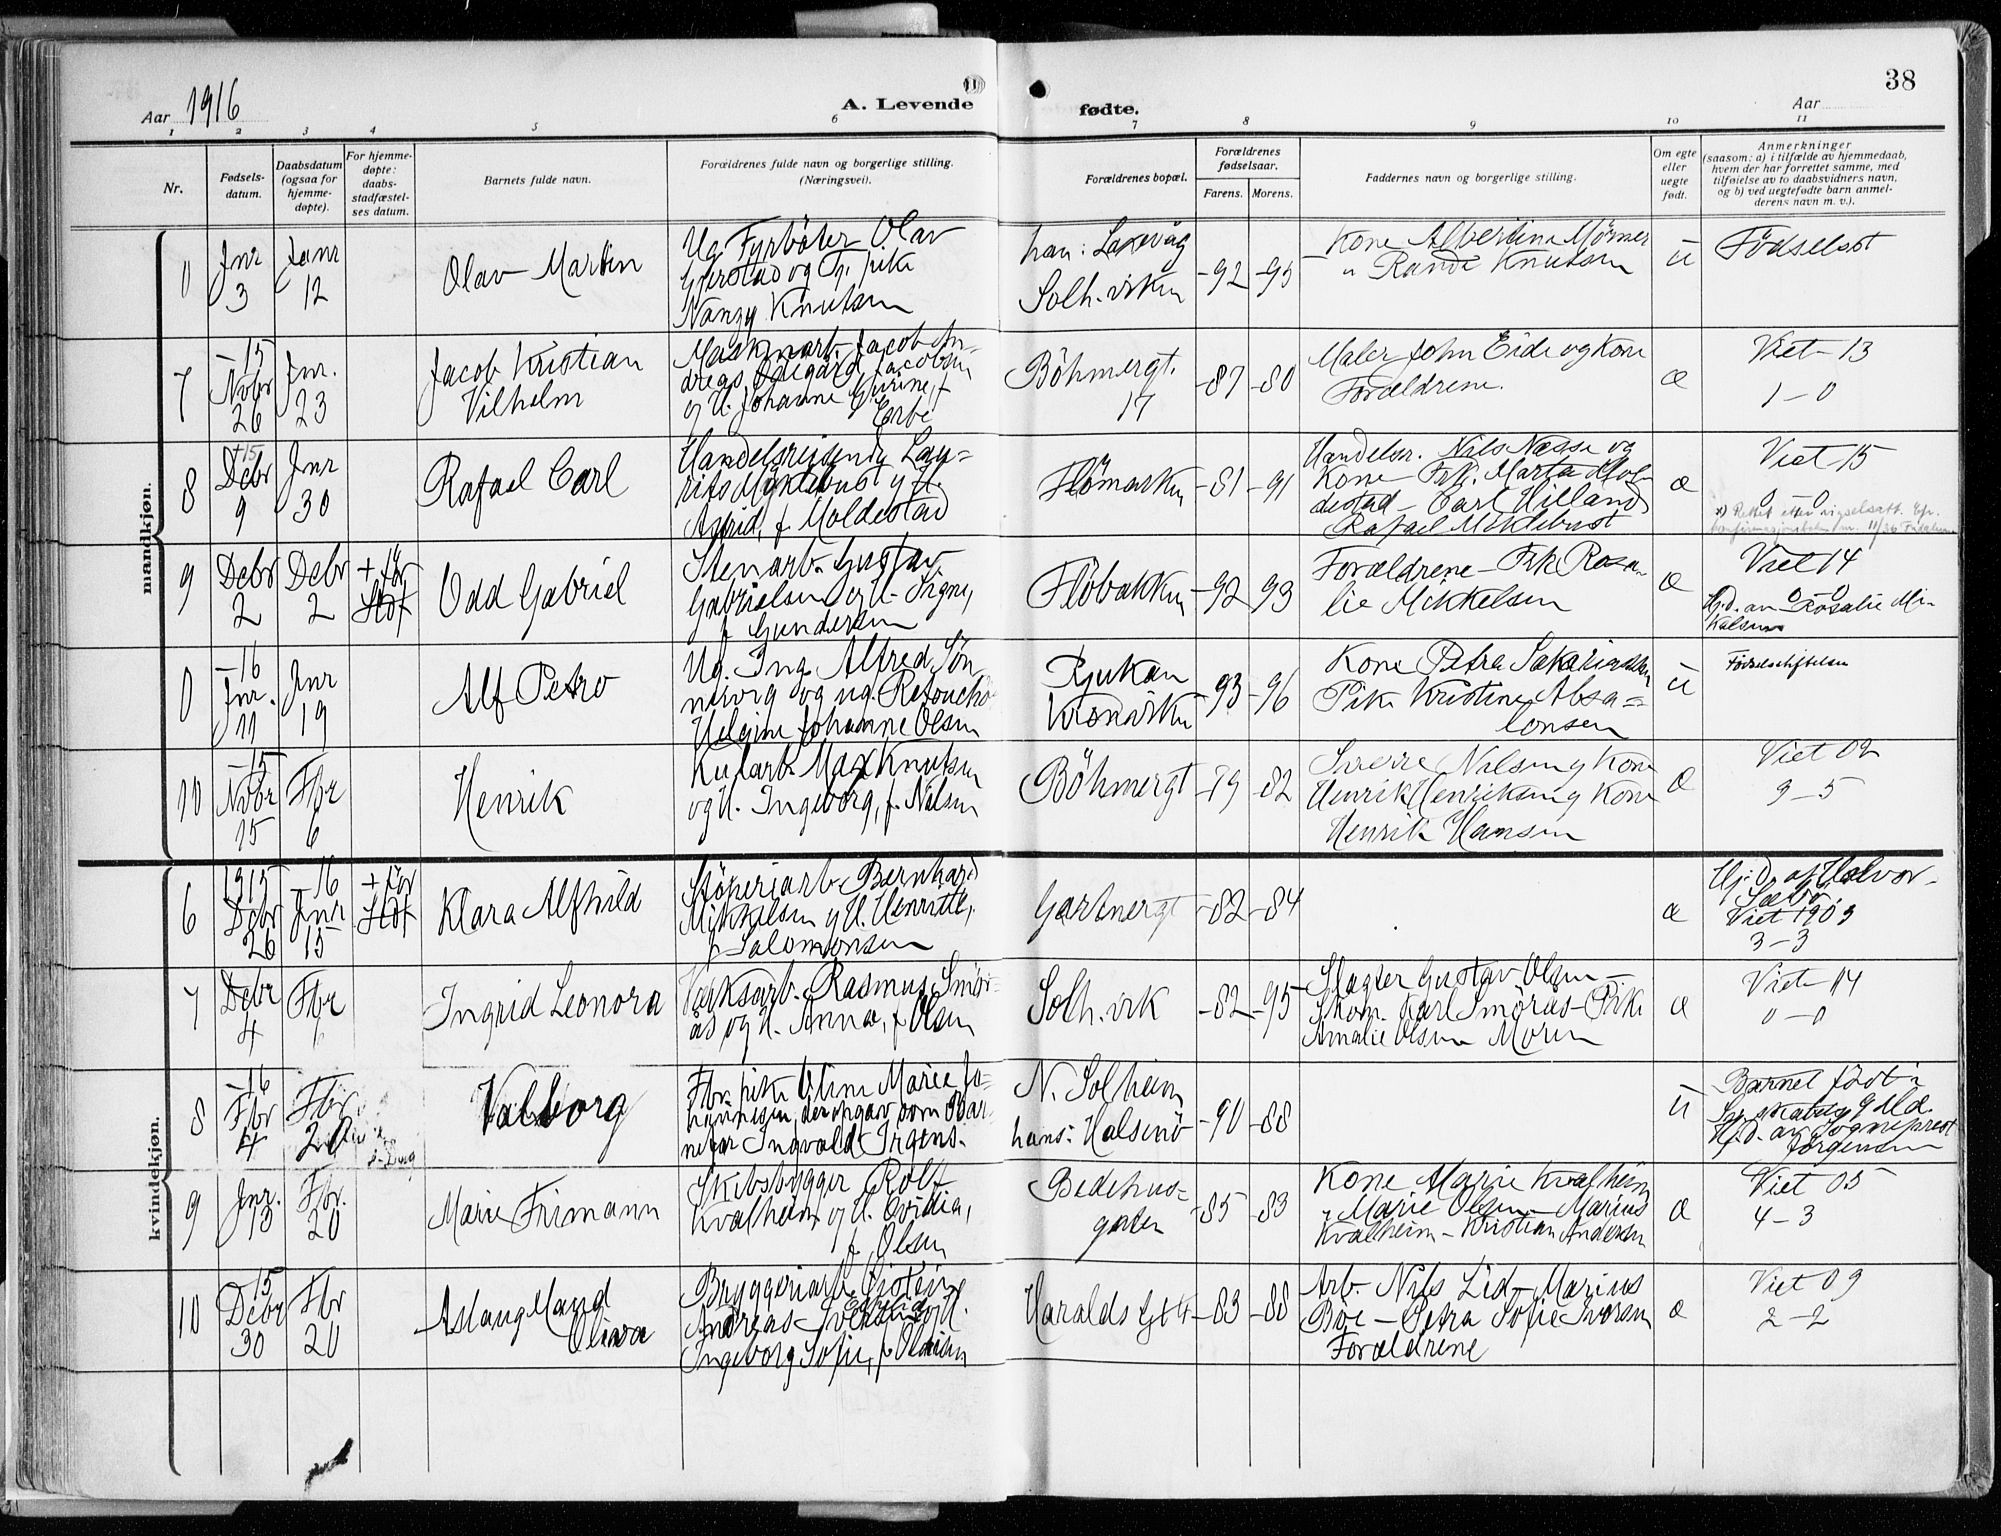 Aar 1916
A. Levende
fødte.
Aar
38
1 2 3 4 5 6 7 8 9 10 11
Nr.
Fødsels-
datum.
Daabsdatum
(ogsaa for
hjemme-
døpte).
For hjemme-
døpte:
daabs-
stadfæstel-
ses datum.
Barnets fulde navn.
Forældrenes fulde navn og borgerlige stilling.
(Næringsvei).
Forældrenes bopæl.
Forældrenes
fødselsaar.
Farens. Morens.
Faddernes navn og borgerlige stilling.
Om egte
eller
uegte
født.
Anmerkninger
(saasom: a) i tilfælde av hjemmedaab,
hvem der har forrettet samme, med
tilføielse av to daabsvidners navn,
og b) ved uegtefødte barn anmel-
derens navn m. v.).
mandkjøn.
0
Jnr
3
Janr
12
Olav Martin
Ug. Fyrbøter Olav
Gjerstad og Fr. pike
Nanzy Knutsen
han: Laxevåg
Solh.viken
-92 -95
Kone Albertine Mørner
" Randi Knutsen
ü
Fødselsst
7
-15
Novbr
26
Jnr.
23
Jacob Kristian
Vilhelm
Maskinarb. Jacob An-
dreas Ødegård Jacobsen
og H. Johanne Gurine, f
Erbe
Böhmergt.
17
-87 -80
Maler John Eide og Kone
Forældrene.
æ
Viet 13
1 - 0
8
-15
Debr
9
Jnr
30
Rafael Carl
Handelsreisende Lau=
rits Myklebust og H.
Astrid, f Moldestad
Flømarken
-81 -91
Handelsr. Nils Næsse og
Kone - Frk. Marta Mol-
destad - Carl Hilland
Rafael Miklebust
æ
Viet 15
0 - 0
9
Debr
2
Debr
2
+ før
Stdf
Odd Gabriel
Stenarb. Gustav
Gabrielsen og H. Signe,
f Gundersen
Fløbakken
-92 93
Forældrene - Frk Rosa-
lie Mikkelsen
æ
Viet 14
0 - 0
Hj.D. av Rosalie Mi-
kalsen
0
-16
Jnr.
11
Jnr
19
Alf Petro
Ug. Ing. Alfred Søn-
nervig og ug. Retouchö
Helgine Johanne Olsen
Rjukan
Kronviken
-93 -96
Kone Petra Sakariassen
Pike Kristine Absa=
lonsen
ü
Fødselsstiftelsen
10
-15
Novbr
15
Fbr
6
Henrik
Kularb. Max Knutsen
og H. Ingeborg, f. Nilsen
Böhmergt
-79 -82
Sverre Nilsen og Kone
Henrik Henriksen og Kone
Henrik Hansen
æ
Viet 02
9 - 5
kvindekjøn.
6
1915
Debr
26
-16
Jnr
15
+ før
Stdf
Klara Alfhild
Støperiarb. Bernhard
Mikkelsen og H. Henritte,
f Salomonsen
Gartnergt
-82 -84
æ
Hj.D. af Halvor
Sæbø.
Viet 1903
3 - 3
7
Debr
4
Fbr
6
Ingrid Leonora
Værksarb. Rasmus Smör-
ås og H. Anna, f Olsen
Solh.vik
-82 -95
Slagter Gustav Olsen -
Skom. Karl Smørås - Pike
Amalie Olsen Moren
æ
Viet 14
0 - 0
8
-16
Fbr
4
Fbr
20
Valborg
Fbr. pike Oline Marie Jo-
hannesen, der opgav som Bar-
nefar Ingvald Irgens.
N. Solheim
hans: Halsenö
-90 -88
ü
Barnet født i
Hj.D. av Sogneprest
Jørgensen
9
Jnr.
13
Fbr.
20
Marie Frimann
Skibsbygger Rolf
Kvalheim og H. Ovidia,
f. Olsen
Bedehus-
gaten
-85 -83
Kone Marie Kvalheim
" Marie Olsen - Marius
Kvalheim - Kristian Andersen
æ
Viet 05
4 - 3
10
15
Debr
30
Fbr
20
Aslaug Maud
Olivia
Bryggeriarb. Øistein
Andreas Iversen og H.
Ingeborg Sofie, f.
Haralds Gt 4
-83 -88
Arb. Nils Lid - Marius
Böe - Petra Sofie Iversen
Forældrene
æ
Viet 09
2 - 2